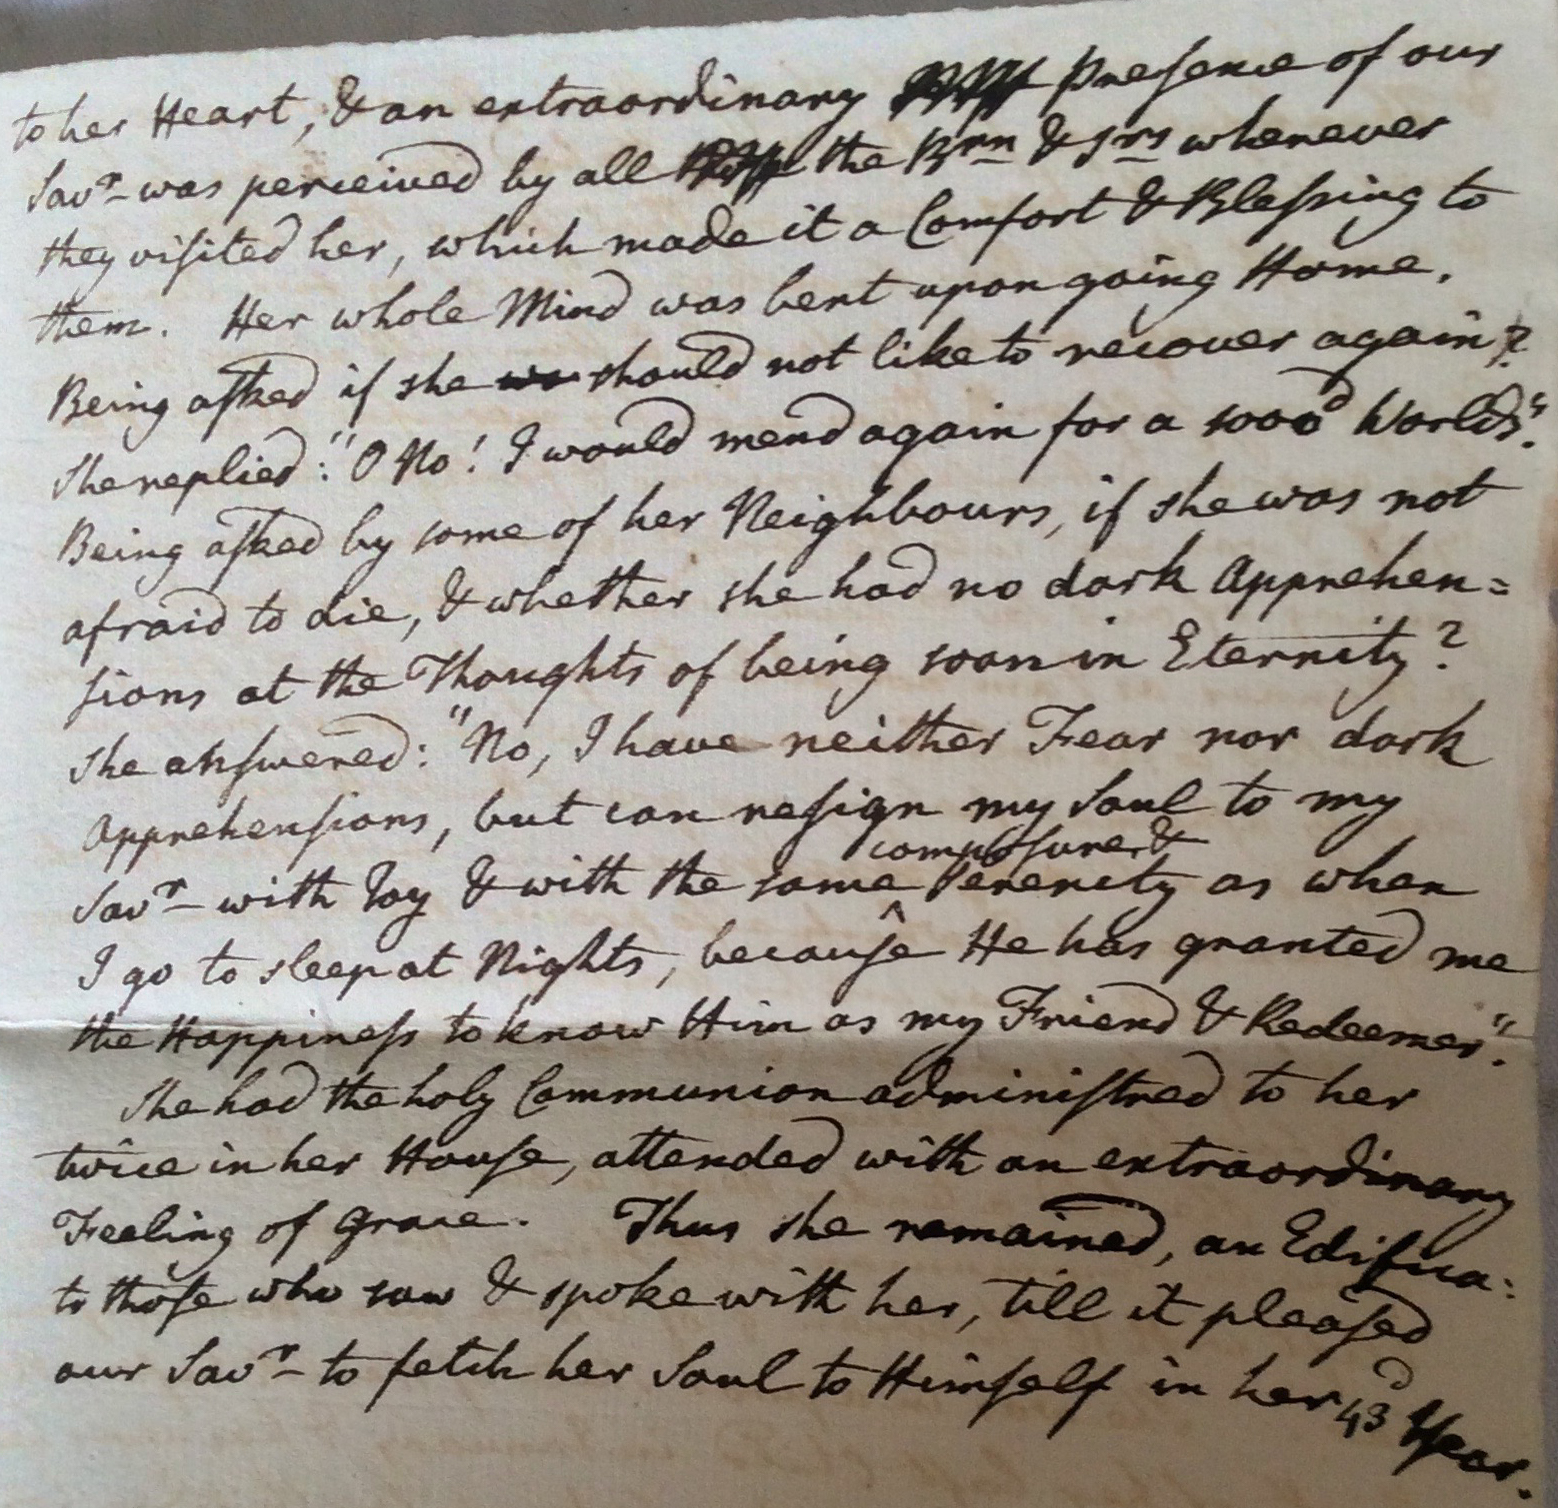 to her Heart, & an extraordinary Presence of our
Savr was perceived by all the Brn & Srs whenever
they visited her, which made it a Comfort & Blessing to
them. Her whole Mind was bent upon going Home.
Being asked if she wo should not like to recover again?
She replied: "O No! I would mend again for a 1000d Worlds".
Being asked by some of her Neighbours, if she was not
afraid to die, & whether she had no dark Apprehen=
sions at the Thoughts of being soon in Eternity?
she answered: "No, I have neither Fear nor dark
Apprehensions, but can resign my Soul to my
composure &
Savr with Joy & with the same ^ Serenity as when
I go to sleep at Nights, because He has granted me
the Happiness to know Him as my Friend & Redeemer".
She had the holy Communion administred to her
twice in her House, attended with an extraordinary
Feeling of Grace. Thus she remained, an Edifica:
to those who saw & spoke with her, till it pleased
our Savr to fetch her Soul to Himself in her 43d Year.